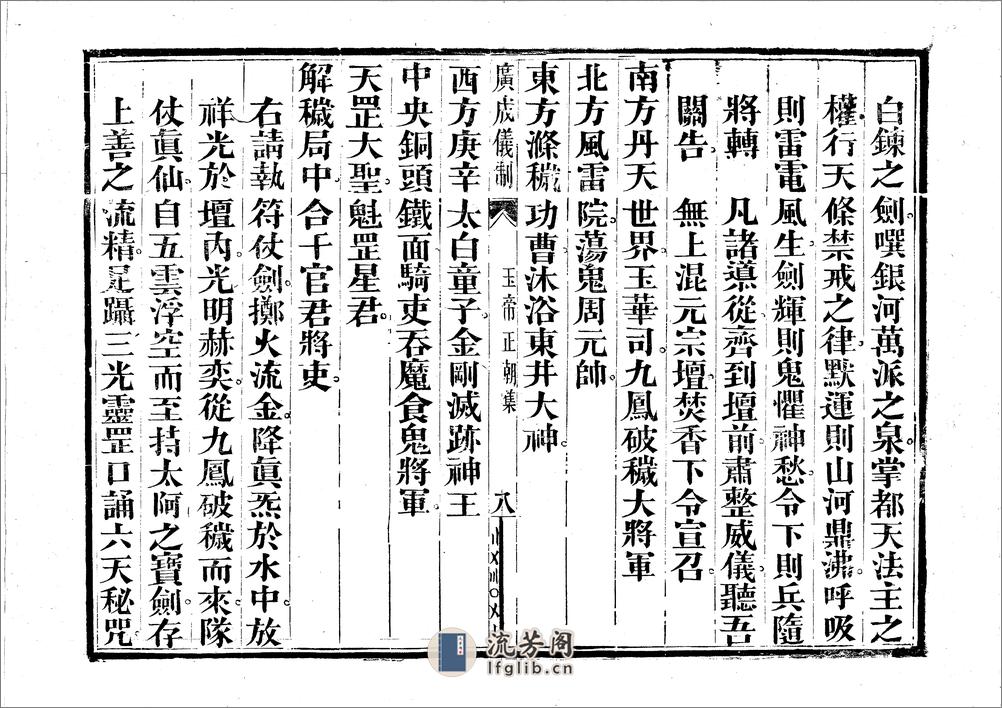 白鍊之劍噀銀河萬派之泉掌都天法主之
權行天條禁戒之律默運則山河鼎沸呼吸
則雷電風生劍輝則鬼懼神愁令下則兵隨
將轉 凡諸導從齊到壇前肅整威儀聽吾
關告 無上混元宗壇焚香下令宣召
南方丹天世界玉華司九鳳破穢大將軍
北方風雷院蕩鬼周元帥
東方滌穢功曹沐浴東井大神
廣成儀制 玉帝正朝集 八
西方庚辛太白童子金剛滅跡神王
中央銅頭鐵面騎吏吞魔食鬼將軍
天罡大聖魁罡星君
解穢局中合千官君將吏
右請執符仗劍擲火流金降眞炁於水中放
祥光於壇內光明赫奕從九鳳破穢而來隊
仗眞仙自五雲浮空而至持太阿之寶劍存
上善之流精足躡三光靈罡口誦六天秘咒
流芳阁
lfglib.cn